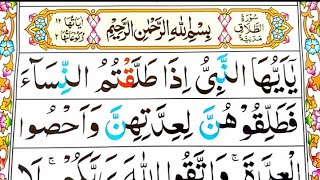 سُورَةُ الطَّلَاقِ مَدَنِيَّةٌ
بِسْمِ اللّٰهِ الرَّحْمٰنِ الرَّحِيْمِ
اٰيَاتُهَا ١٢ رُكُوْعَاتُهَا ٢
يٰۤاَيُّهَا النَّبِيُّ اِذَا طَلَّقْتُمُ النِّسَآءَ
فَطَلِّقُوْهُنَّ لِعِدَّتِهِنَّ وَاَحْصُوا
الْعِدَّةَ ۚ وَاتَّقُوا اللّٰهَ رَبَّكُمْ ۚ لَا